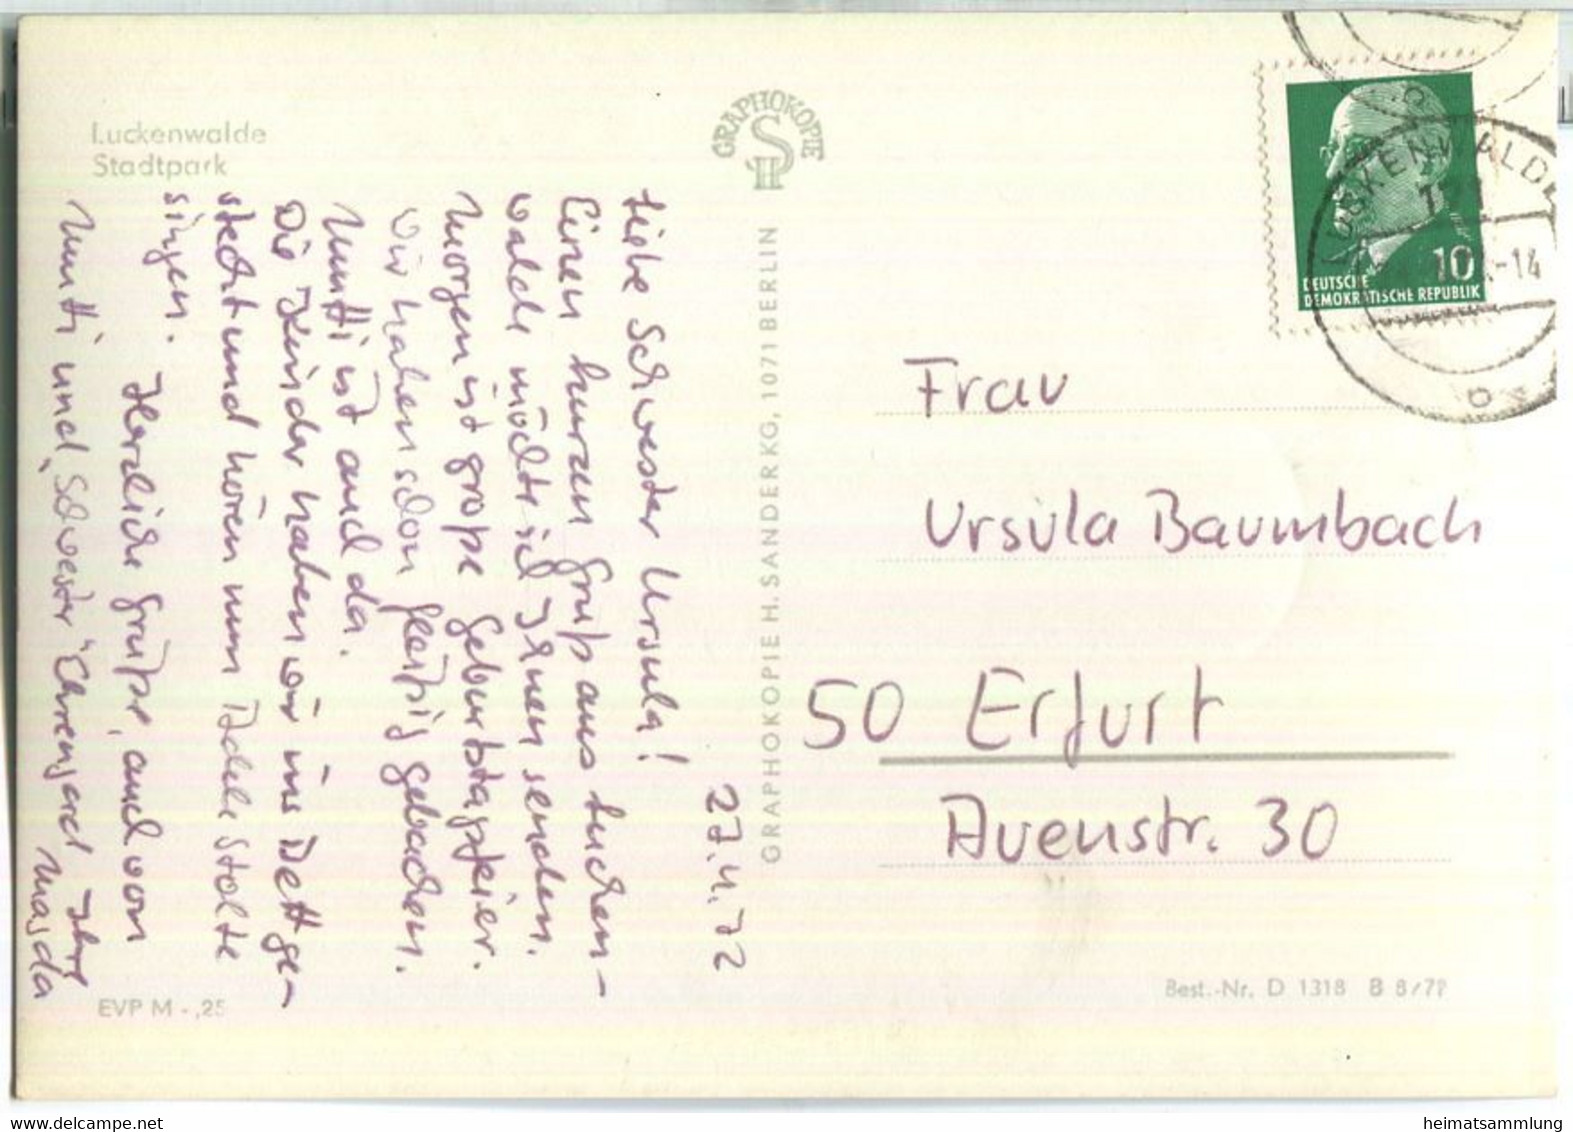 Luckenwalde
Stadtpark
GRAPHOKOPIE
H S
GRAPHOKOPIE H. SANDER KG, 1071 BERLIN
27.11.72
Liebe Schwester Ursula!
Einen kurzen Gruß aus Lucken-
walde möchte ich Ihnen senden.
Morgen ist große Geburtstagsfeier.
Wir haben schon fleißig gebacken.
Mutti ist auch da.
Die Kinder haben wir ins Bett ge-
steckt und hören nun Stolte
singen.
Herzliche Grüße, auch von
Mutti und "Schwester" Ehrengard Ihre
Magda
EVP M -,25
LUCKENWALDE
-14
b
10
DEUTSCHE
DEMOKRATISCHE REPUBLIK
Frau
Ursula Baumbach
50 Erfurt
Auenstr. 30
Best.-Nr. D 1318 B 8/72
heimatsammlung